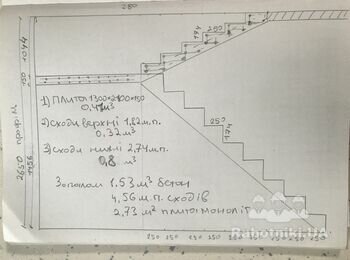 280
1044
150
1456
2650
194
280
250
174
1) Плита 1300×2100×150
0.41м³
2) Сходи верхні 1,82 м.п.
0.32 м³
3) Сходи нижні 2,74 м.п.
0,8 м³
Загалом 1.53 м³ бетон
4,56 м.п. сходів
2,73 м² плити моноліт
250 250 250 250 250 250 250 250 250 250
Rabotniki.UA